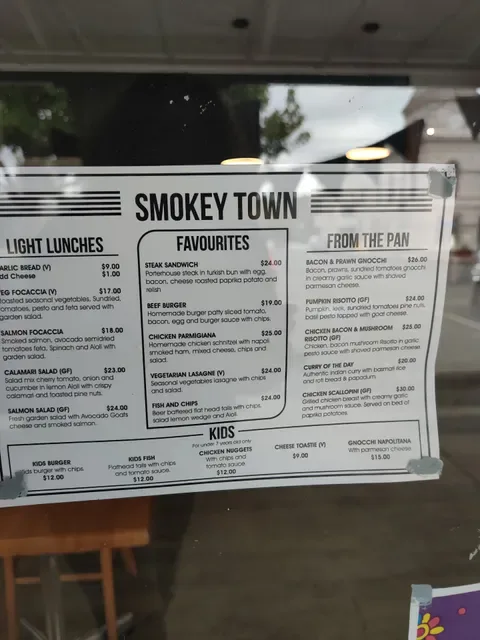 SMOKEY TOWN
LIGHT LUNCHES
ARLIC BREAD (V) $9.00
dd Cheese $1.00
EG FOCACCIA (V) $17.00
oasted seasonal vegetables, Sundried,
tomatoes, pesto and feta served with
garden salad.
SALMON FOCACCIA $18.00
Smoked salmon, avocado semidried
tomatoes feta, Spinach and Aioli with
garden salad.
CALAMARI SALAD (GF) $23.00
Salad mix cherry tomato, onion and
cucumber in lemon Aioli with crispy
calamari and toasted pine nuts.
SALMON SALAD (GF) $24.00
Fresh garden salad with Avocado Goats
cheese and smoked salmon.
FAVOURITES
STEAK SANDWICH $24.00
Porterhouse steak in turkish bun with egg,
bacon, cheese roasted paprika potato and
relish
BEEF BURGER $19.00
Homemade burger patty sliced tomato,
bacon, egg and burger sauce with chips.
CHICKEN PARMIGIANA $25.00
Homemade chicken schnitzel with napoli
smoked ham, mixed cheese, chips and
salad.
VEGETARIAN LASAGNE (V) $24.00
Seasonal vegetables lasagne with chips
and salad.
FISH AND CHIPS $24.00
Beer battered flat head tails with chips,
salad lemon wedge and Aioli.
FROM THE PAN
BACON & PRAWN GNOCCHI $26.00
Bacon, prawns, sundried tomatoes gnocchi
in creamy garlic sauce with shaved
parmesan cheese.
PUMPKIN RISOTTO (GF) $24.00
Pumpkin, leek, sundried tomatoes pine nuts,
basil pesto topped with goat cheese
CHICKEN BACON & MUSHROOM $25.00
RISOTTO (GF)
Chicken, bacon mushroom risotto in garlic
pesto sauce with shaved parmesan cheese
CURRY OF THE DAY $20.00
Authentic indian curry with basmati rice
and roti bread & papadum
CHICKEN SCALLOPINI (GF) $30.00
Grilled chicken breast with creamy garlic
and mushroom sauce. Served on bed of
paprika potatoes.
KIDS
For under 7 years old only
KIDS BURGER
ids burger with chips.
$12.00
KIDS FISH
Flathead tails with chips
and tomato sauce.
$12.00
CHICKEN NUGGETS
With chips and
tomato sauce
$12.00
CHEESE TOASTIE (V)
$9.00
GNOCCHI NAPOLITANA
With parmesan cheese
$15.00